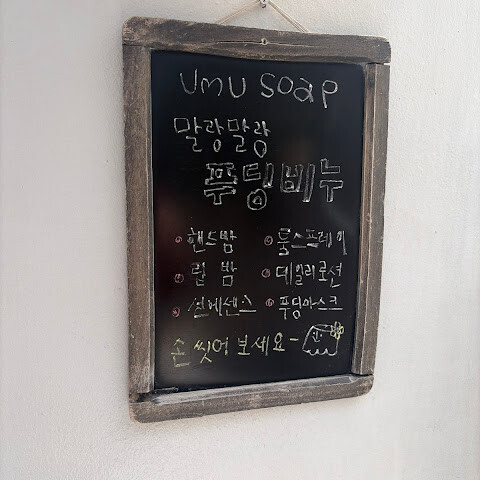 UMU SOAP
말랑말랑
푸딩비누
핸드밤 룸스프레이
립 밤 데일리로션
선에센스 푸딩마스크
손 씻어 보세요~